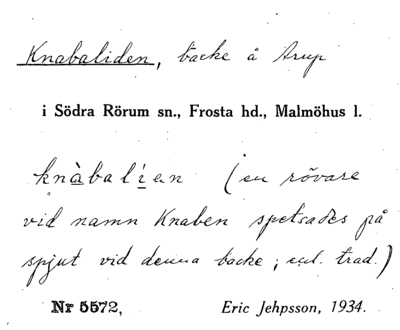 Knabaliden, backe å Arup
i Södra Rörum sn., Frosta hd., Malmöhus l.
knàbalien (en rövare
vid namn Knaben spetsades på
spjut vid denna backe; enl. trad.)
Nr 5572, Eric Jehpsson, 1934.